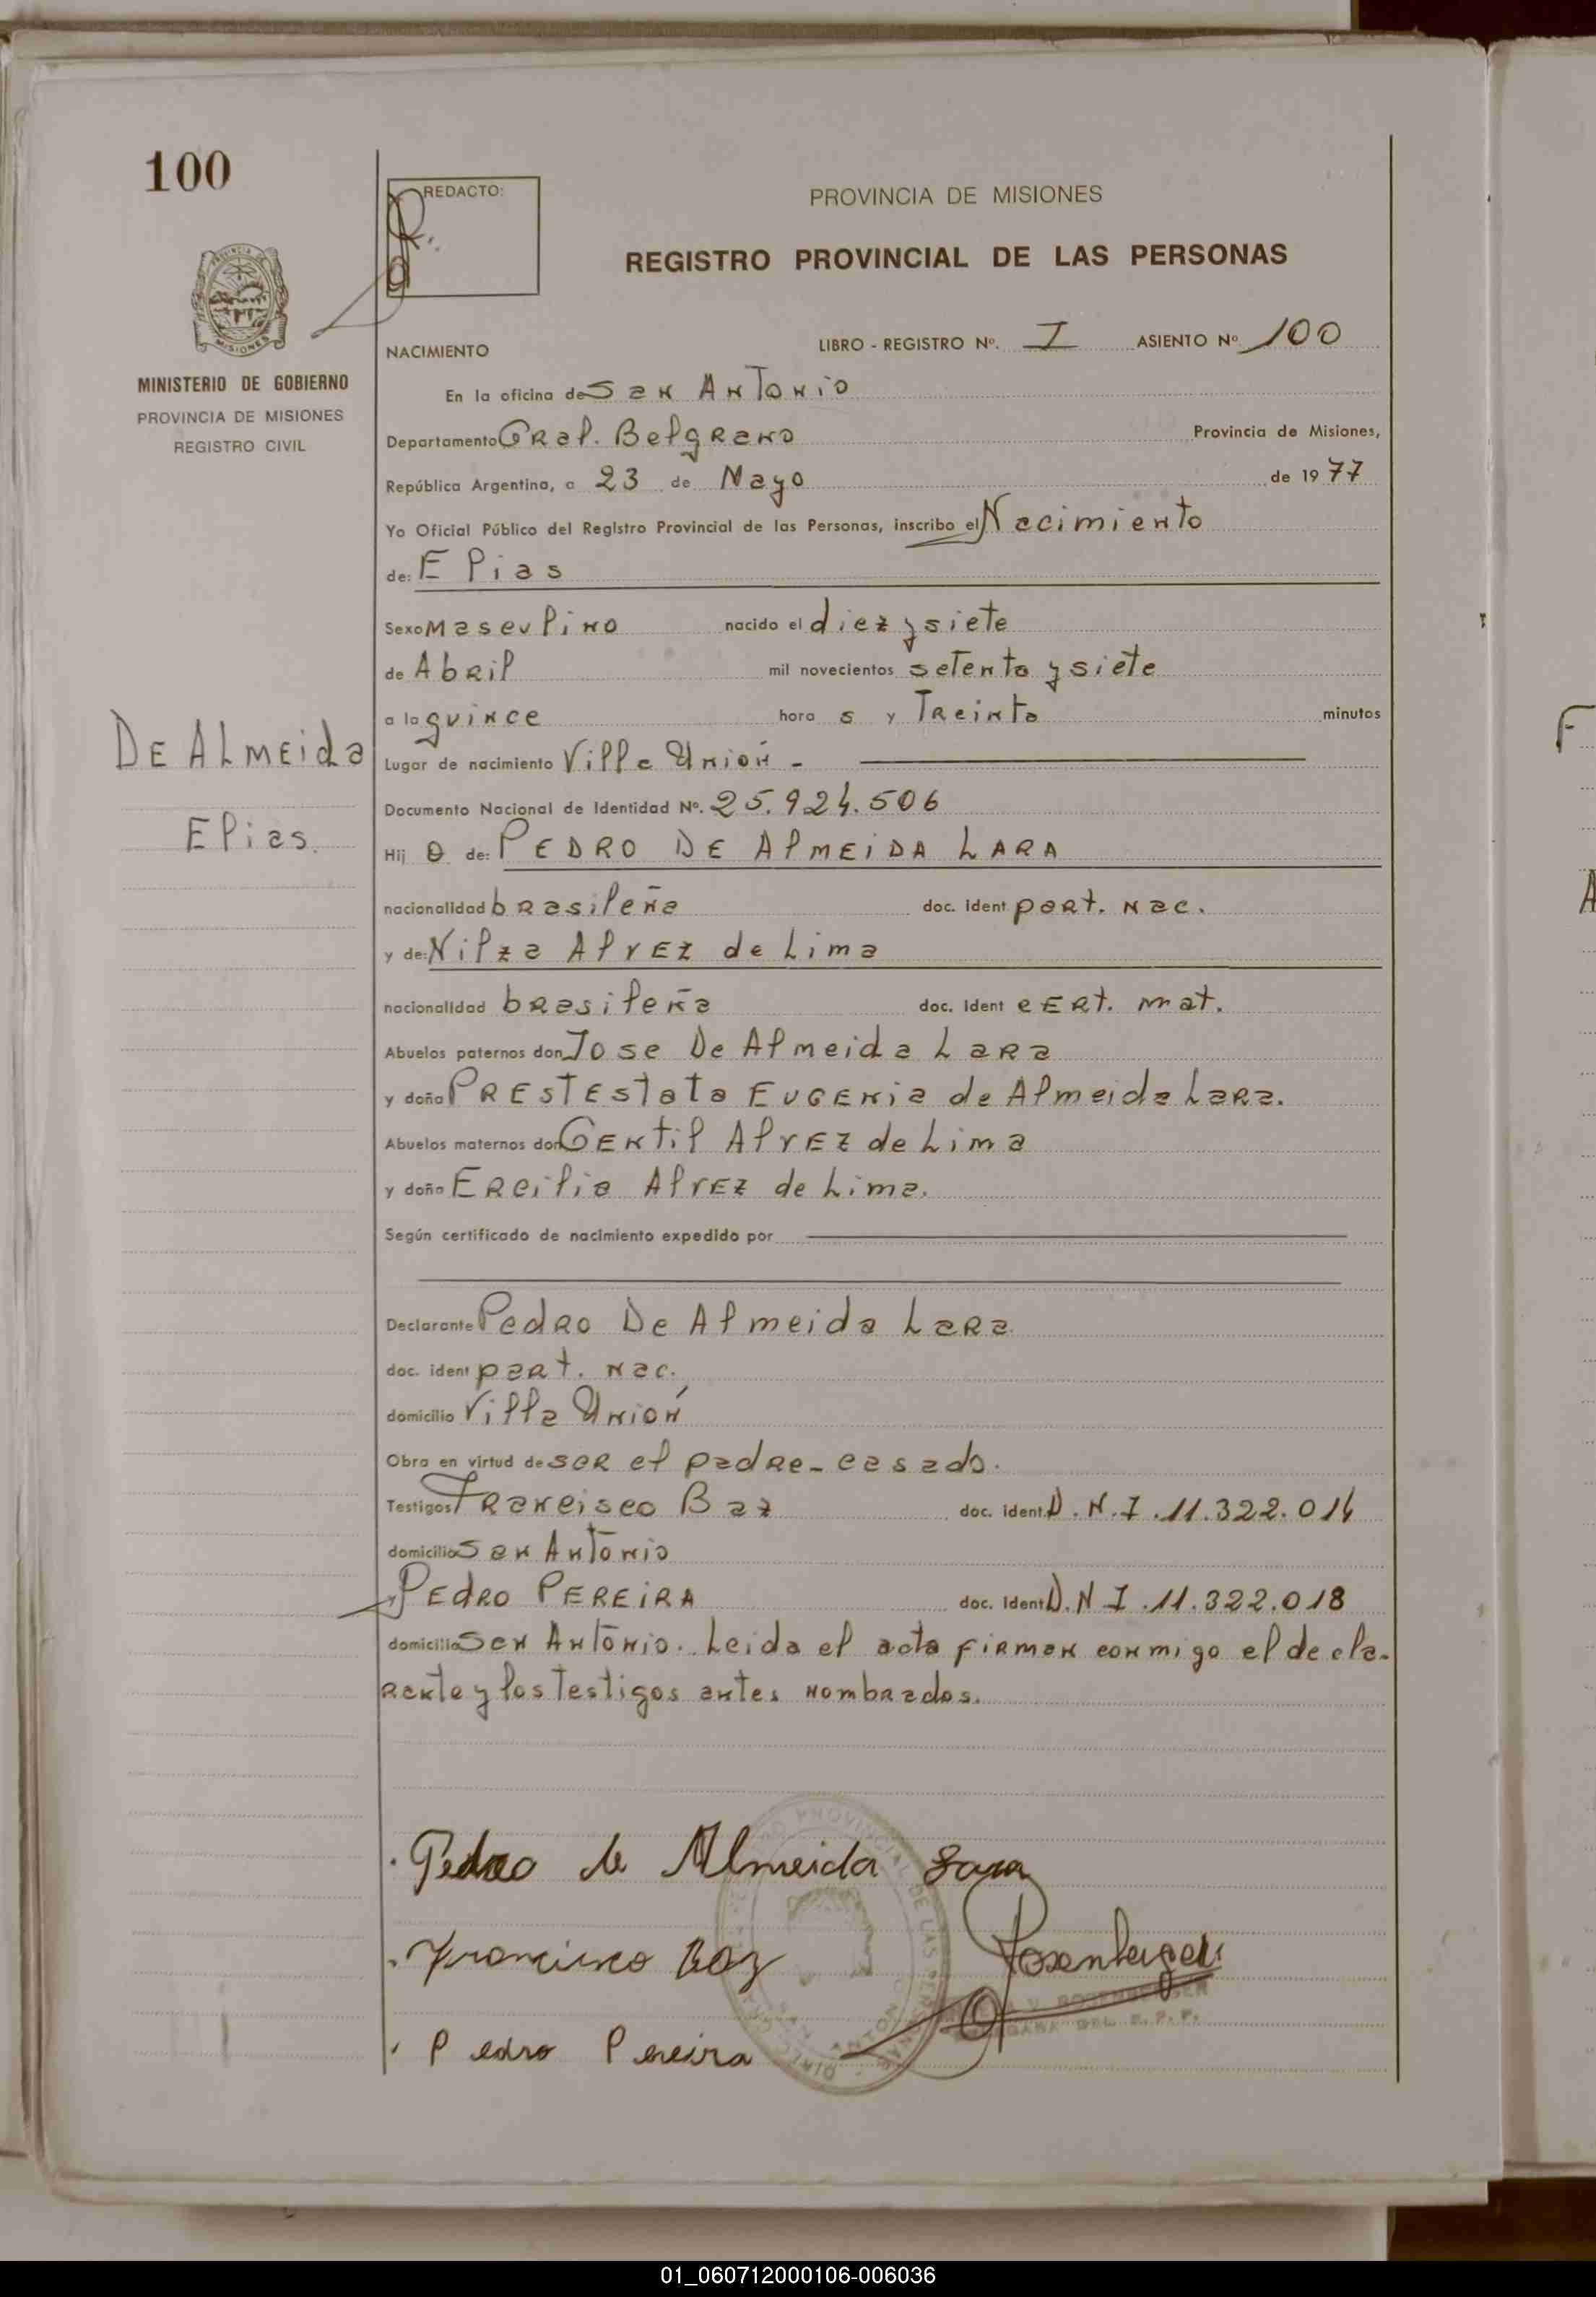 100
REDACTO:
PROVINCIA DE MISIONES
REGISTRO PROVINCIAL DE LAS PERSONAS
MISIONES
MINISTERIO DE GOBIERNO
PROVINCIA DE MISIONES
REGISTRO CIVIL
NACIMIENTO LIBRO - REGISTRO Nº. I ASIENTO Nº 100
En la oficina de San Antonio
Departamento Gral. Belgrano Provincia de Misiones,
República Argentina, a 23 de Mayo de 1977
Yo Oficial Público del Registro Provincial de las Personas, inscribo el Nacimiento
de: Elias
Sexo Masculino nacido el diez y siete
de Abril mil novecientos setenta y siete
a la quince hora s y Treinta minutos
De Almeida
Elias.
Lugar de nacimiento Villa Unión -
Documento Nacional de Identidad Nº. 25.924.506
Hij o de: PEDRO DE AlMEiDA LARA
nacionalidad brasileña doc. ident part. nac.
y de: Nilza Alvez de Lima
nacionalidad brasileña doc. ident cert. mat.
Abuelos paternos don Jose De Almeida Lara
y doña Prestestata Eugenia de Almeida Lara.
Abuelos maternos don Gentil Alvez de Lima
y doña Ercilia Alvez de Lima.
Según certificado de nacimiento expedido por
Declarante Pedro De Almeida Lara
doc. ident part. nac.
domicilio Villa Unión
Obra en virtud de ser el padre - casado.
Testigos Francisco Baz doc. ident. D.N.I. 11.322.014
domicilio San Antonio
y Pedro PEREiRA doc. ident D.N.I. 11.322.018
domicilio San Antonio. Leida el acta firman conmigo el decla-
rante y los testigos antes nombrados.
Pedro de Almeida Lara
Francisco Baz
Rosenberger
Pedro Pereira
01_060712000106-006036